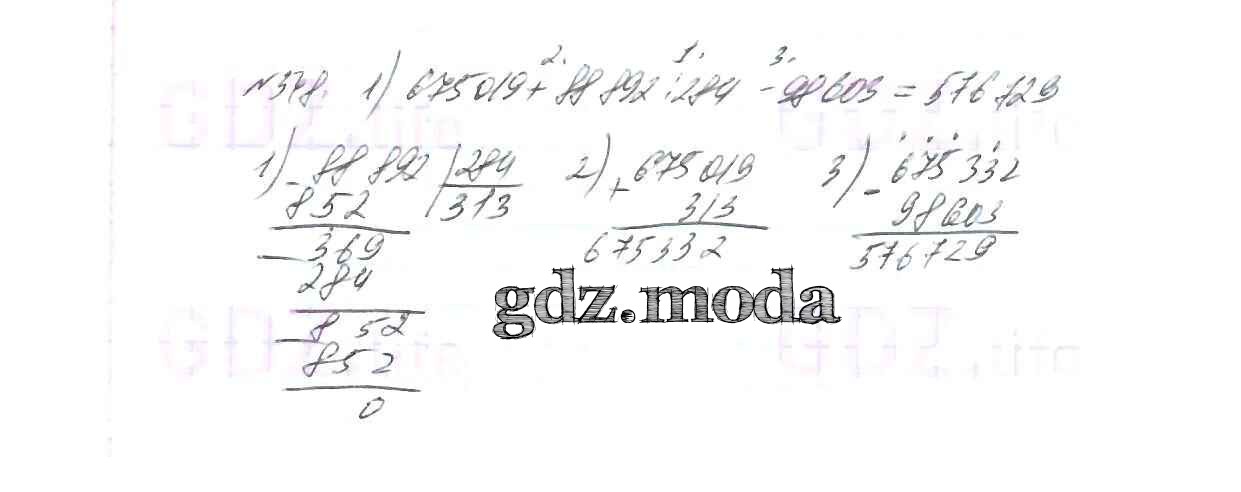 2. 1. 3.
№348. 1) 675019 + 88892 : 284 - 98603 = 576729
1) - 88892 | 284 2) + 675019 3) - 675332
852 | 313 313 98603
- 369 675332 576729
284
gdz.moda
- 852
852
0